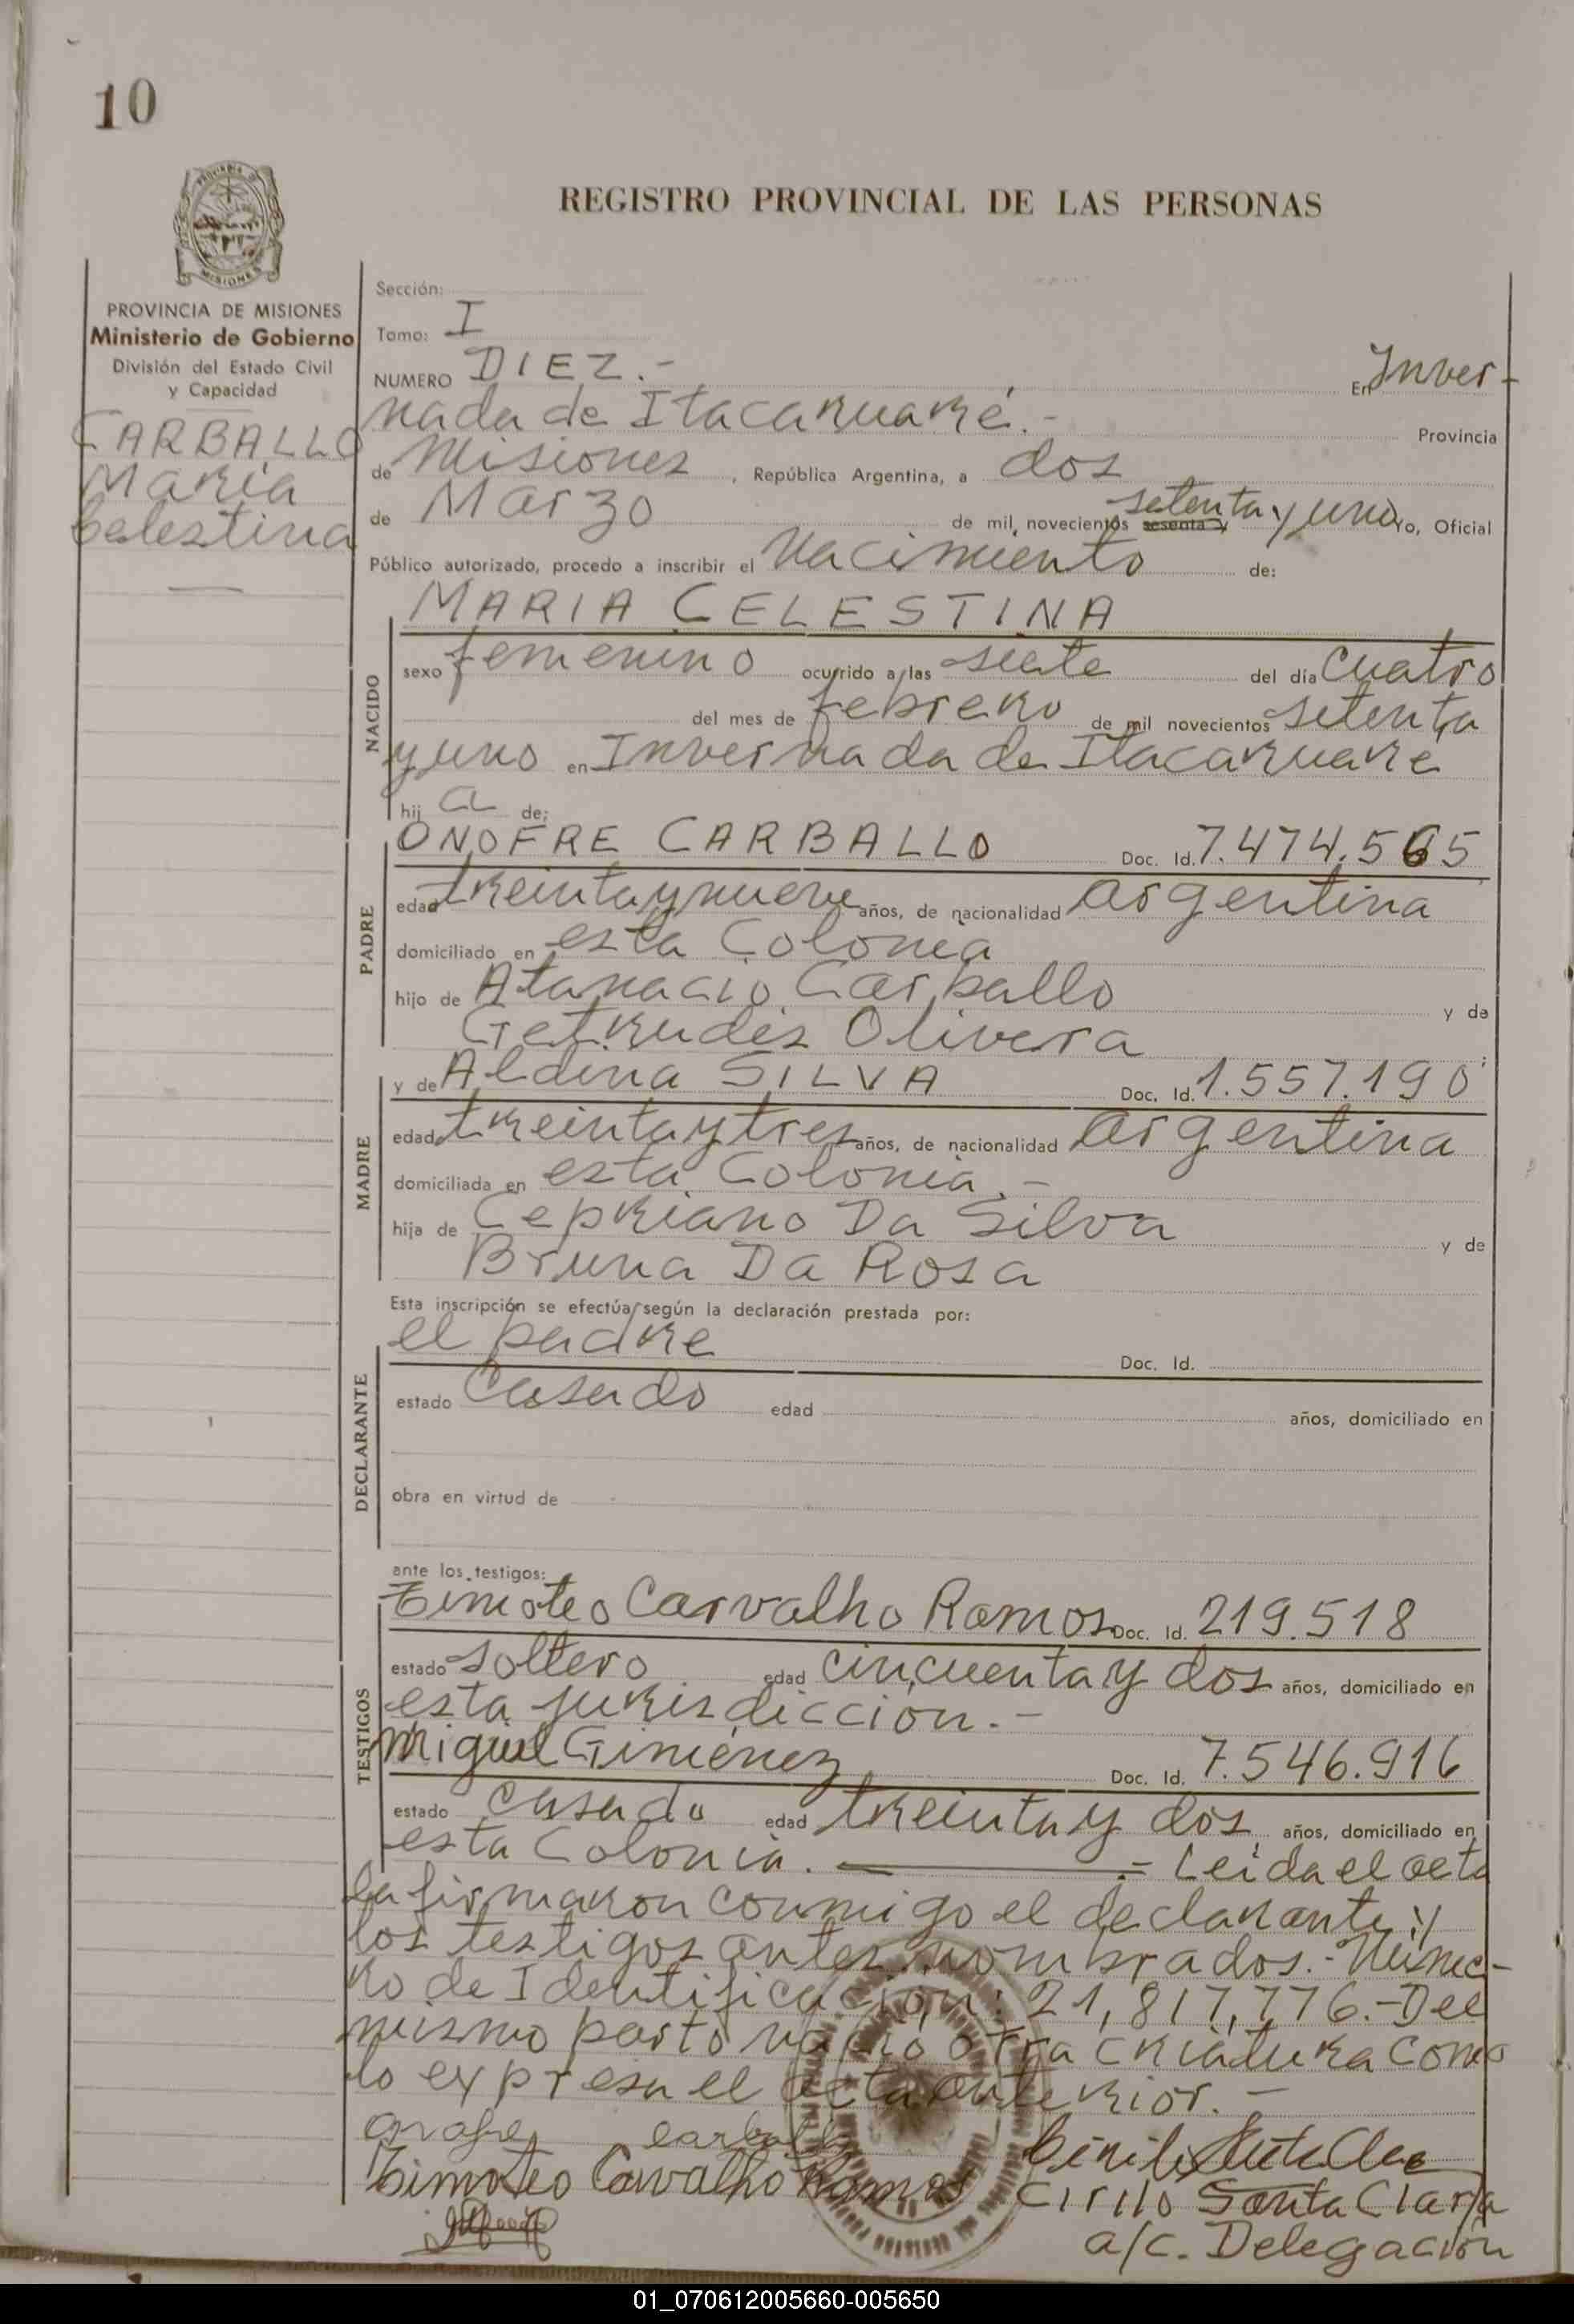 10
PROVINCIA DE
MISIONES
REGISTRO PROVINCIAL DE LAS PERSONAS
PROVINCIA DE MISIONES
Ministerio de Gobierno
División del Estado Civil
y Capacidad
CARBALLO
María
Celestina
Sección:
Tomo: I
NUMERO DIEZ.- En Inver-
nada de Itacaruaré.- Provincia
de Misiones, República Argentina, a dos
de Marzo de mil novecientos sesenta y setenta y uno Yo, Oficial
Público autorizado, procedo a inscribir el Nacimiento de:
NACIDO
MARIA CELESTINA
sexo femenino ocurrido a las siete del día cuatro
del mes de febrero de mil novecientos setenta
y uno en Invernada de Itacaruaré
hij a de:
PADRE
ONOFRE CARBALLO Doc. Id. 7.474.565
edad treinta y nueve años, de nacionalidad argentina
domiciliado en esta Colonia
hijo de Atanacio Carballo y de
Getrudis Olivera
MADRE
y de Aldina SILVA Doc. Id. 1.557.190
edad treinta y tres años, de nacionalidad argentina
domiciliada en esta Colonia.-
hija de Cepriano Da Silva y de
Bruna Da Rosa
Esta inscripción se efectúa según la declaración prestada por:
DECLARANTE
el padre Doc. Id.
estado Casado edad años, domiciliado en
obra en virtud de
ante los testigos:
TESTIGOS
Timoteo Carvalho Ramos Doc. Id. 219.518
estado soltero edad cincuenta y dos años, domiciliado en
esta jurisdicción.-
Miguel Giménez Doc. Id. 7.546.916
estado casado edad treinta y dos años, domiciliado en
esta Colonia. - Leida el acta
la firmaron conmigo el declarante y
los testigos antes nombrados.- Núme-
ro de Identificación: 21,817,776.- Del
mismo parto nació otra criatura como
lo expresa el acta anterior.-
Onofre Carballo
Timoteo Carvalho Ramos
Cirilo Santa Clara
a/c. Delegación
01_070612005660-005650